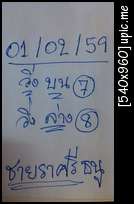 01/02/59
วิ่ง บน 7
วิ่ง ล่าง 8
ชายราศรีธนู
[540x960] uplc.me